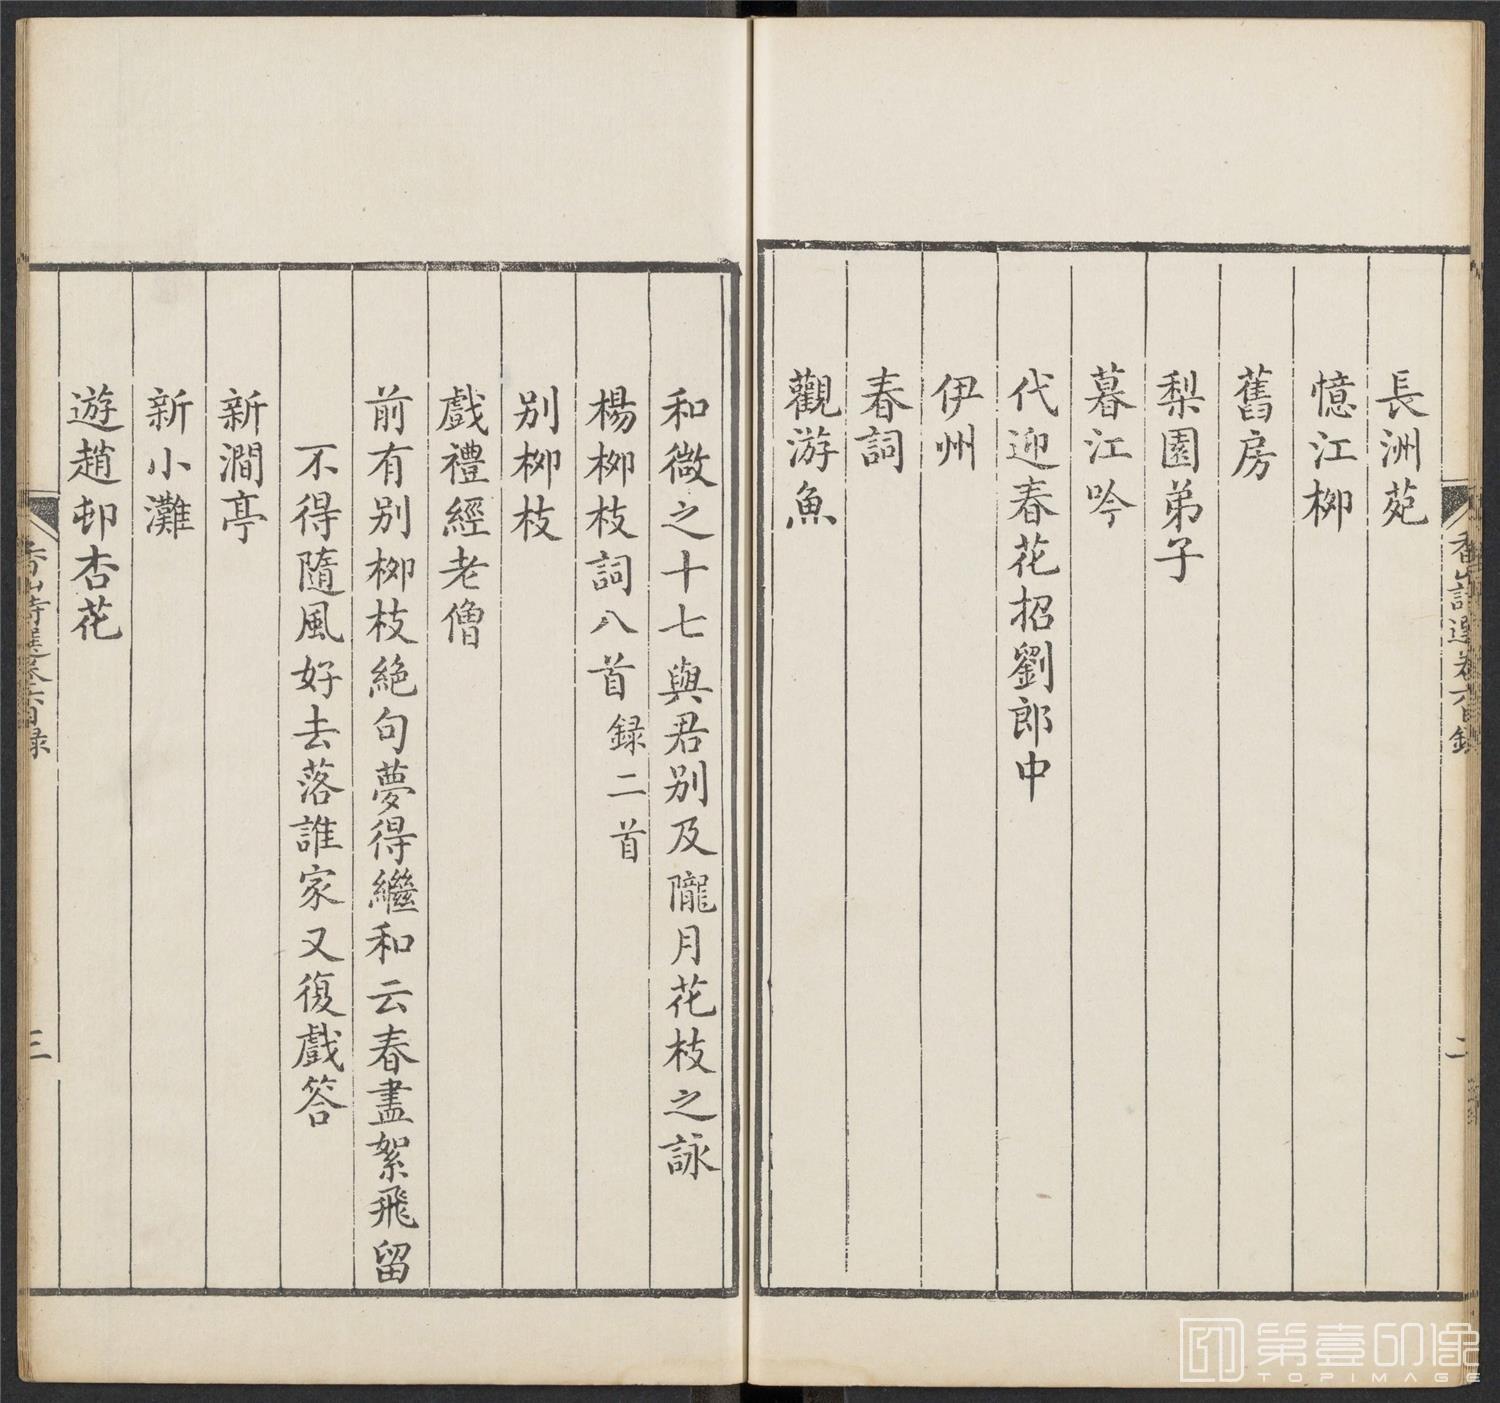 香山詩選卷六目錄
二
長洲苑
憶江柳
舊房
梨園弟子
暮江吟
代迎春花招劉郎中
伊州
春詞
觀游魚
和微之十七與君別及隴月花枝之詠
楊柳枝詞八首録二首
別柳枝
戲禮經老僧
前有別柳枝絕句夢得繼和云春盡絮飛留
不得隨風好去落誰家又復戲答
新澗亭
新小灘
遊趙邨杏花
香山詩選卷六目録
三
第壹印像
TOPIMAGE